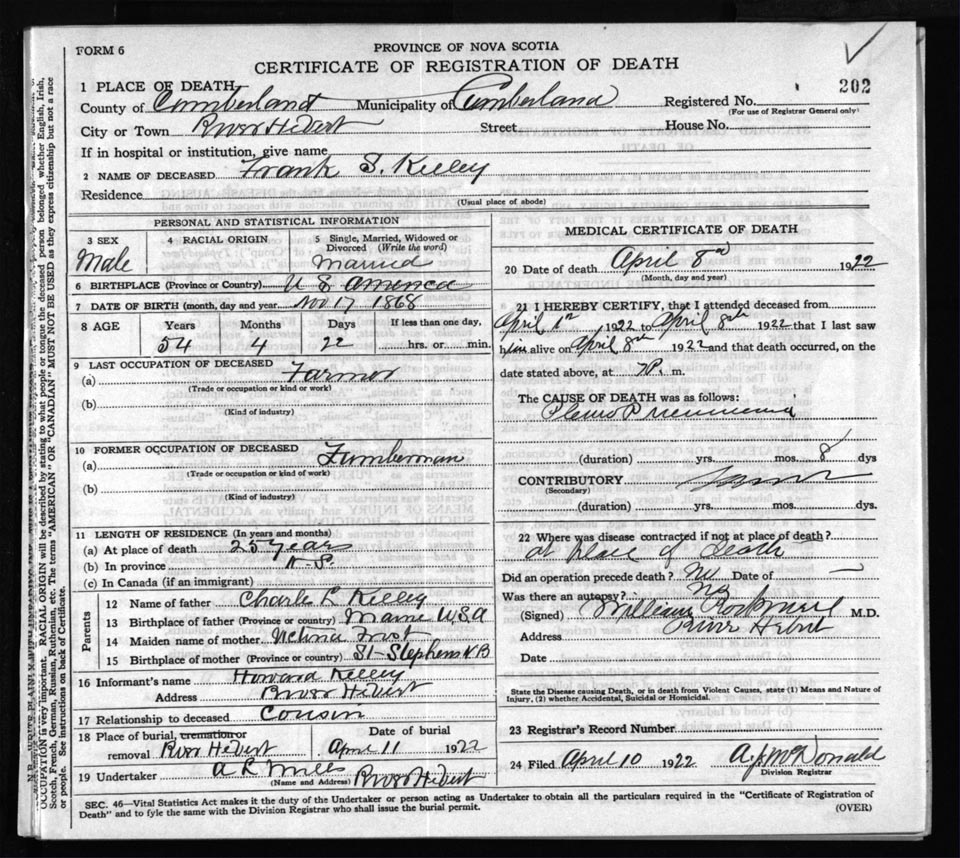 FORM 6
PROVINCE OF NOVA SCOTIA
CERTIFICATE OF REGISTRATION OF DEATH
202
1 PLACE OF DEATH
County of Cumberland Municipality of Cumberland Registered No.
(For use of Registrar General only)
City or Town River Hebert Street House No.
If in hospital or institution, give name
2 NAME OF DECEASED Frank S. Kelley
Residence
(Usual place of abode)
PERSONAL AND STATISTICAL INFORMATION
3 SEX Male
4 RACIAL ORIGIN
5 Single, Married, Widowed or Divorced (Write the word)
Married
6 BIRTHPLACE (Province or Country) U S America
7 DATE OF BIRTH (month, day and year) Nov 17 1868
8 AGE Years Months Days If less than one day,
54 4 22 hrs. or min.
9 LAST OCCUPATION OF DECEASED
(a) Farmer
(Trade or occupation or kind or work)
(b)
(Kind of industry)
10 FORMER OCCUPATION OF DECEASED
(a) Lumberman
(Trade or occupation or kind of work)
(b)
(Kind of industry)
11 LENGTH OF RESIDENCE (In years and months)
(a) At place of death 25 years
(b) In province N.S.
(c) In Canada (if an immigrant)
Parents
12 Name of father Charle L Kelley
13 Birthplace of father (Province or country) Maine U.S.A
14 Maiden name of mother
15 Birthplace of mother (Province or country) St-Stephens N B
16 Informant's name Howard Kelley
Address River Hebert
17 Relationship to deceased Cousin
18 Place of burial, cremation or removal River Hebert
Date of burial
April 11 1922
19 Undertaker A R Mills River Hebert
(Name and Address)
MEDICAL CERTIFICATE OF DEATH
20 Date of death April 8 1922
(Month, day and year)
21 I HEREBY CERTIFY, that I attended deceased from
April 1 1922 to April 8th 1922 that I last saw
him alive on April 8th 1922 and that death occurred, on the
date stated above, at P. m.
The CAUSE OF DEATH was as follows:
Pleuro Pneumonia
(duration) yrs. mos. 8 dys
CONTRIBUTORY
(Secondary)
(duration) yrs. mos. dys.
22 Where was disease contracted if not at place of death?
at place of death
Did an operation precede death? No Date of
Was there an autopsy? No
(Signed) William Rockwell M.D.
Address River Hebert
Date
State the Disease causing Death, or in death from Violent Causes, state (1) Means and Nature of
Injury, (2) whether Accidental, Suicidal or Homicidal.
23 Registrar's Record Number
24 Filed April 10 1922 A.J. McDonald
Division Registrar
SEC. 46—Vital Statistics Act makes it the duty of the Undertaker or person acting as Undertaker to obtain all the particulars required in the "Certificate of Registration of
Death" and to fyle the same with the Division Registrar who shall issue the burial permit.
(OVER)
OCCUPATION is very important. RACIAL ORIGIN will be described by stating to what people or tongue the deceased person belonged, whether English, Irish,
Scotch, French, German, Russian, Ruthenian, etc. The terms "AMERICAN" OR "CANADIAN" MUST NOT BE USED as they express citizenship but not a race
or people. See instructions on back of Certificate.